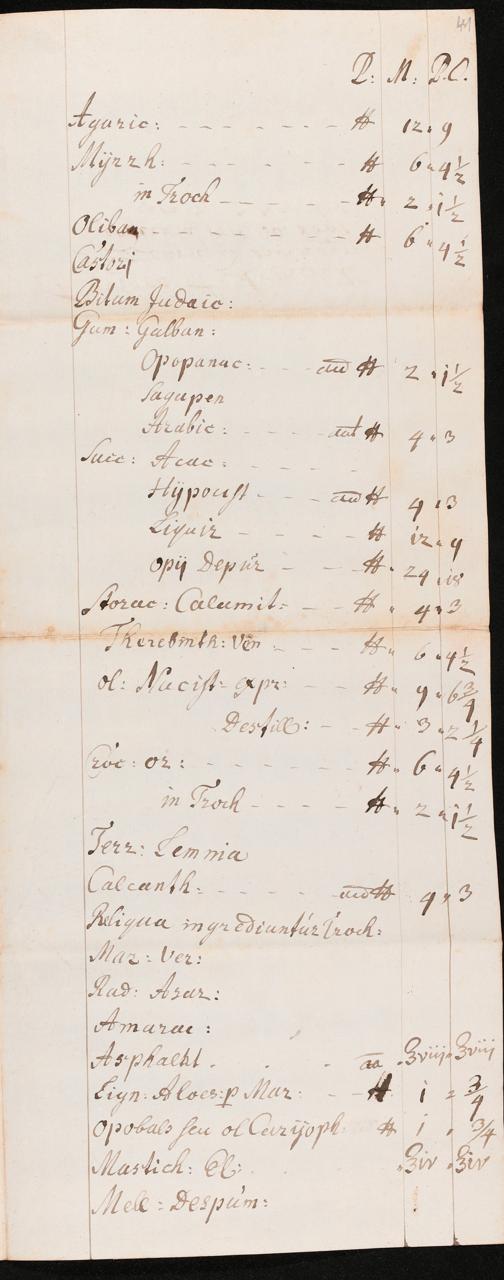 441
P: M: P.C.
Agaric: - - - - - - - ℔ 12 " 9
Mÿrrh: - - - - - - ℔ 6 " 4½
in Troch - - - - - ℔ " 2 " 1½
Oliban - - - - - - ℔ 6 " 4½
Castorj
Bitum Judaic:
Gum: Galban:
Opopanac: - - - ana ℔ 2 " 1½
Sagapen
Arabic: - - - ana ℔ 4 " 3
Succ: Acac: - - - -
Hÿpocist - - - ana ℔ 4 " 3
Liquir - - - - ℔ 12 " 9
opij Depur - - - ℔ " 24 " 18
Storac: Calamit: - - ℔ " 4 " 3
Therebinth: Ven - - - ℔ " 6 " 4½
ol: Nucist: expr: - - - ℔ " 9 " 6¾
Destill: - - ℔ " 3 " 2¼
Croc: or: - - - - - - ℔ " 6 " 4½
in Troch - - - - ℔ " 2 " 1½
Terr: Lemnia
Calcanth: - - - - - ana ℔ 4 " 3
Reliqua ingrediuntúr Troch:
Mar: Ver:
Rad: Asar:
Amarac:
Asphalth . . . - aa " ℥viij " ℥viij
Lign: Aloes: p Mar: - - ℔ 1 " ¾
Opobals seu ol Carÿoph: ℔ 1 " ¾
Mastich: El: . . . " ℥iv " ℥iv
Mell: Despúm: